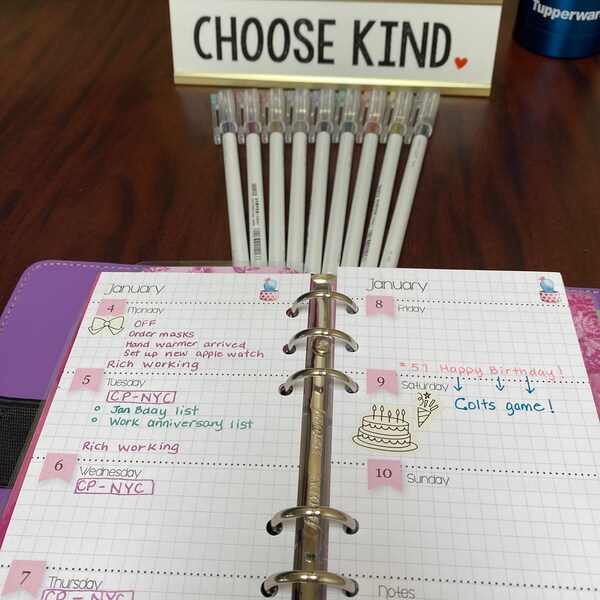 CHOOSE KIND.
Tupperware
January
4 Monday
OFF
Order masks
Hand warmer arrived
Set up new apple watch
Rich working
5 Tuesday
CP-NYC
Jan Bday list
Work anniversary list
Rich working
6 Wednesday
CP-NYC
7 Thursday
CP-NYC
January
8 Friday
*57 Happy Birthday!
9 Saturday
Colts game!
10 Sunday
Notes